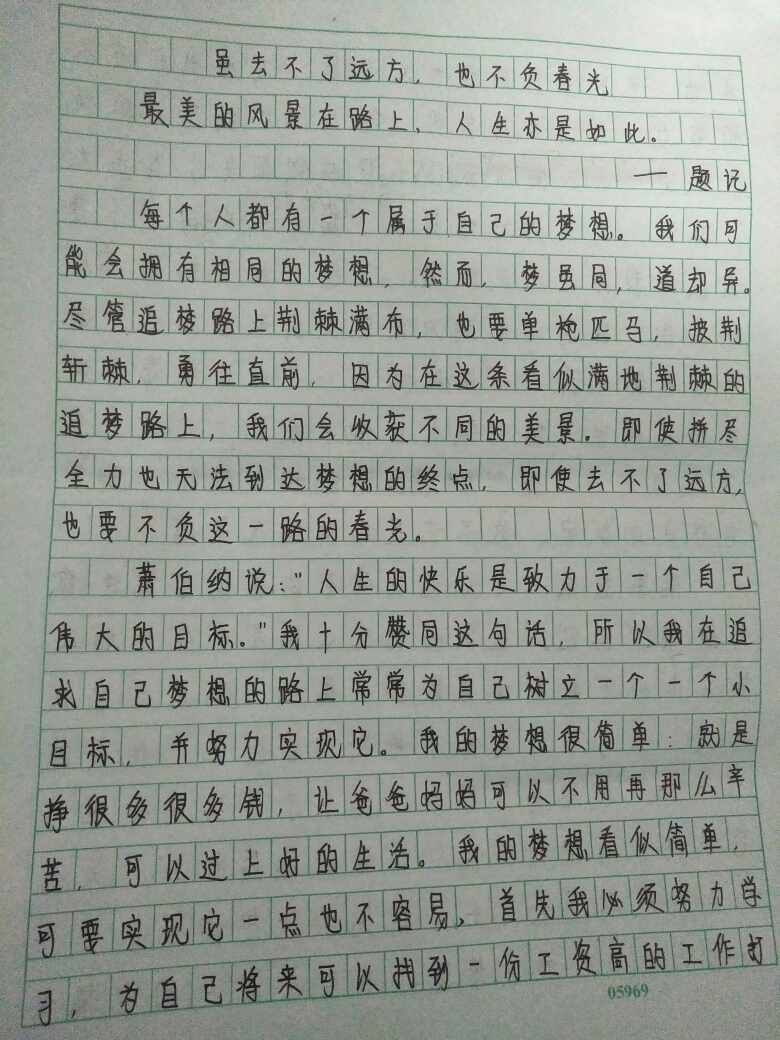 虽去不了远方，也不负春光
最美的风景在路上，人生亦是如此。
——题记
每个人都有一个属于自己的梦想。我们可
能会拥有相同的梦想，然而，梦虽同，道却异。
尽管追梦路上荆棘满布，也要单枪匹马，披荆
斩棘，勇往直前，因为在这条看似满地荆棘的
追梦路上，我们会收获不同的美景。即使拼尽
全力也无法到达梦想的终点，即使去不了远方，
也要不负这一路的春光。
萧伯纳说："人生的快乐是致力于一个自己
伟大的目标。"我十分赞同这句话，所以我在追
求自己梦想的路上常常为自己树立一个一个小
目标，并努力实现它。我的梦想很简单：就是
挣很多很多钱，让爸爸妈妈可以不用再那么辛
苦，可以过上好的生活。我的梦想看似简单，
可要实现它一点也不容易，首先我必须努力学
习，为自己将来可以找到一份工资高的工作打
05969